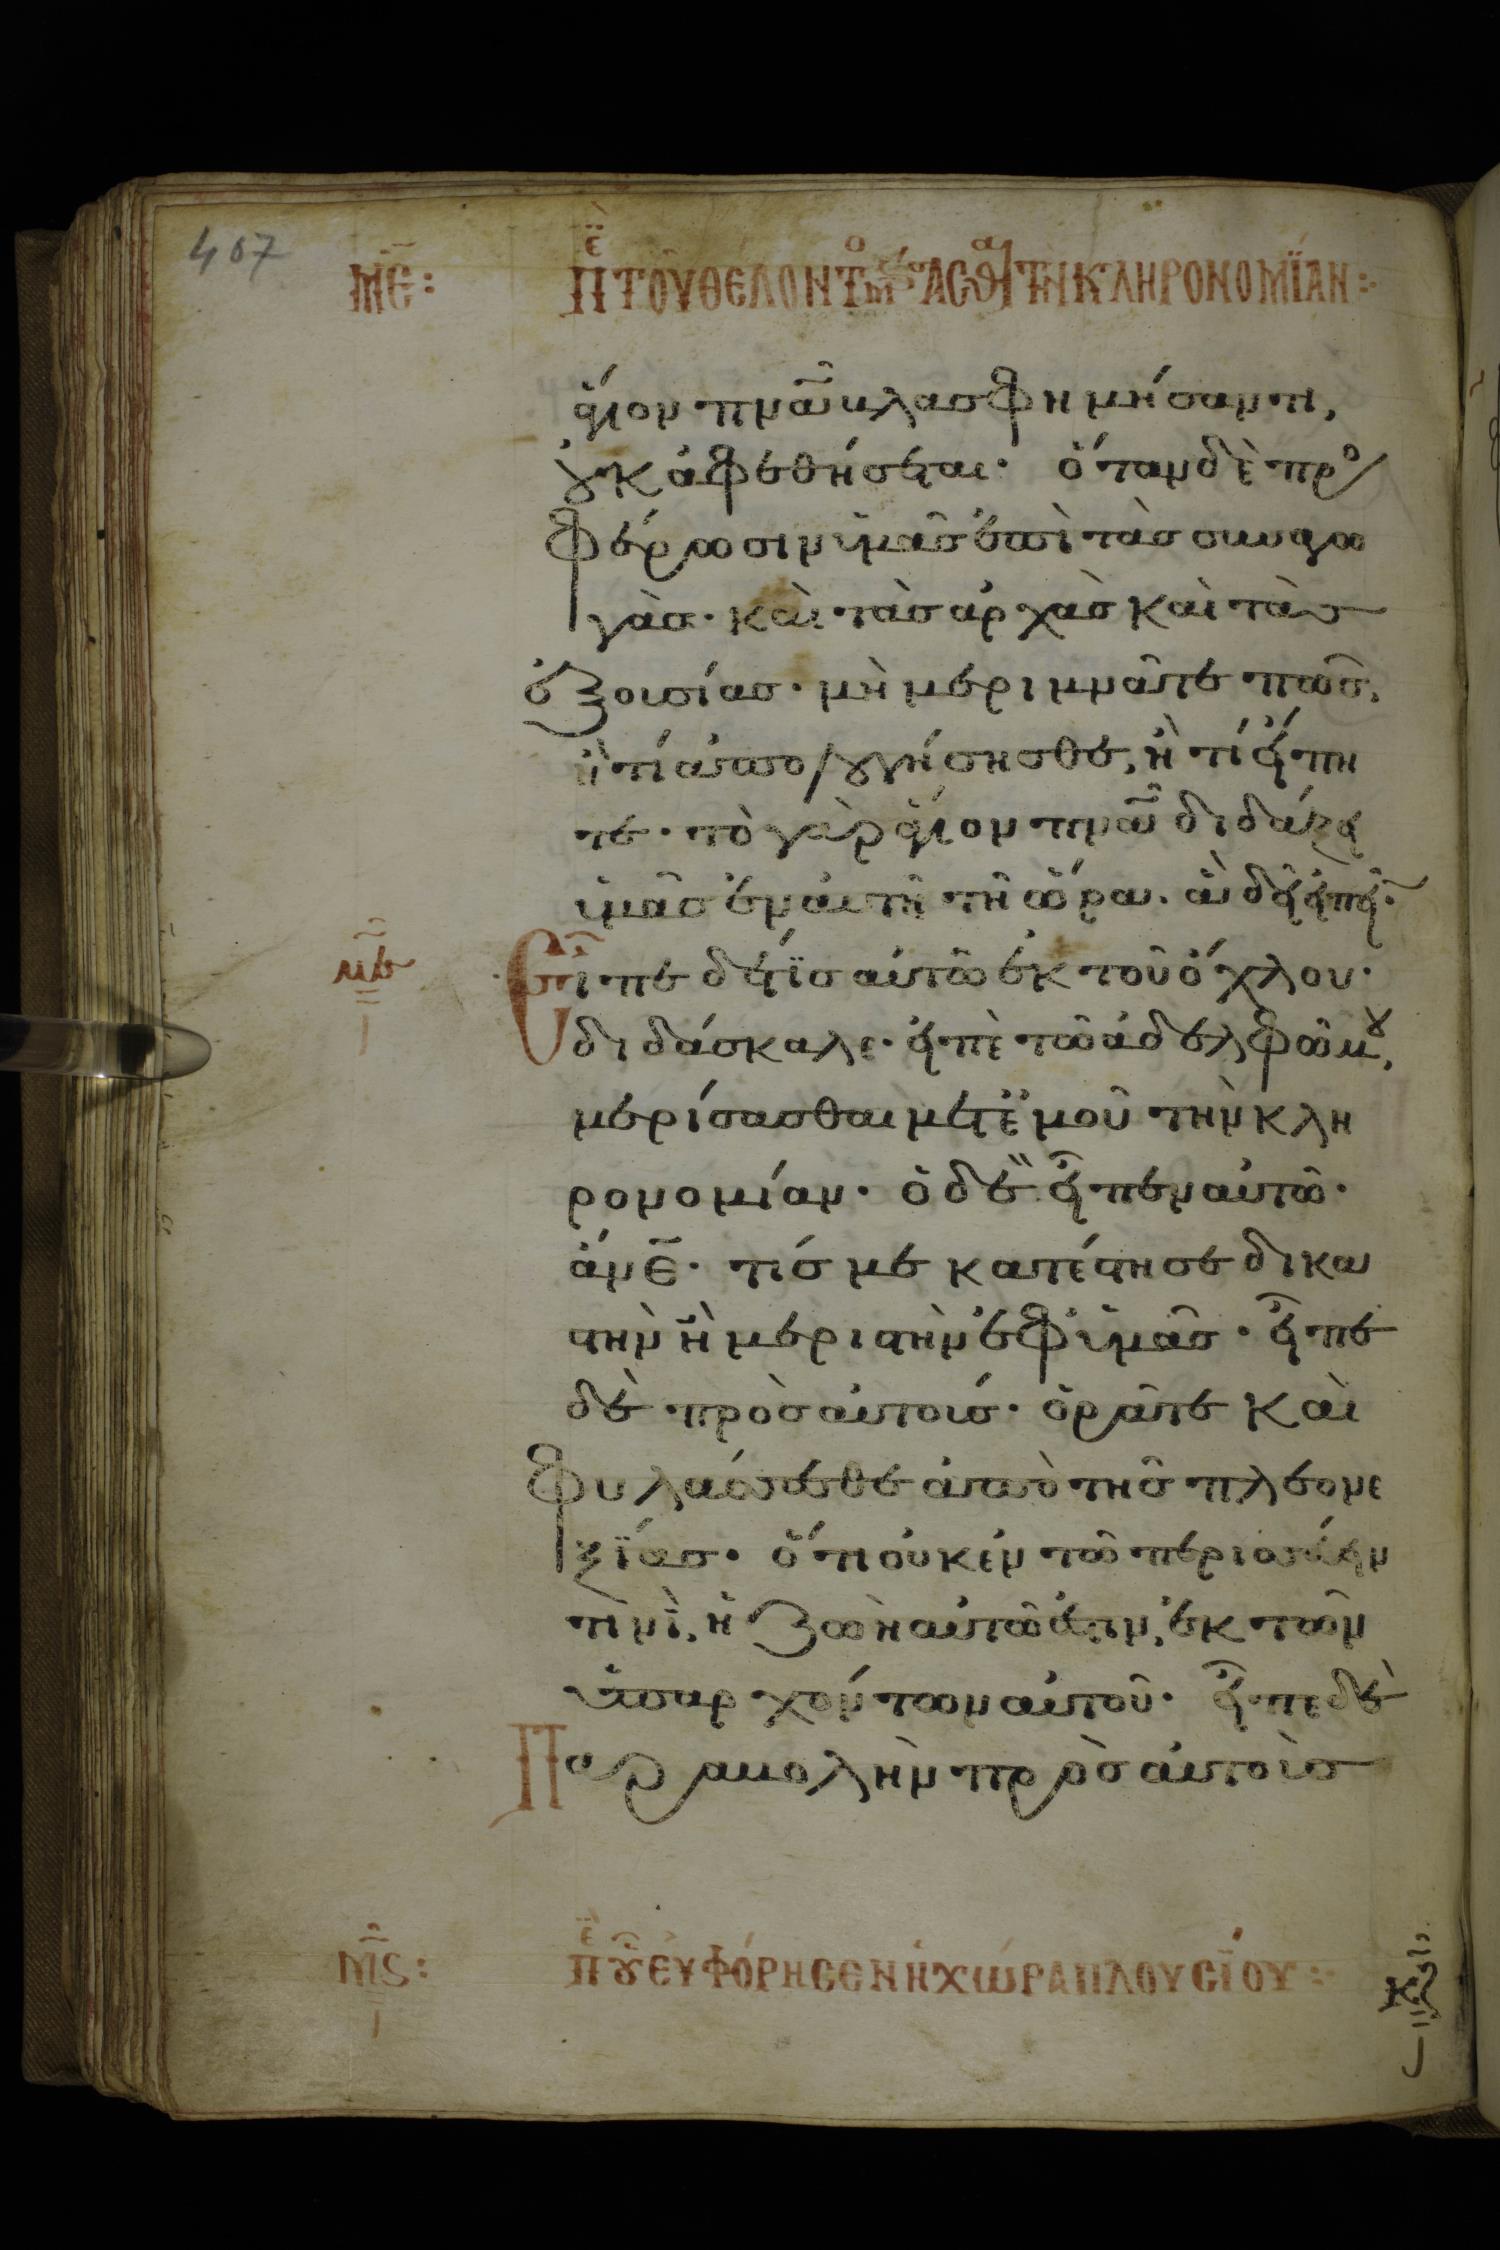 407
ΜΕ: ΠΕ ΤΟΥ ΘΕΛΟΝΤΟς ΜΕΡΙΣΑΣΘΑΙ ΤΗΝ ΚΛΗΡΟΝΟΜΪΑΝ:·
ἅγιον πνα βλασφημήσαντι,
οὐκ ἀφεθήσεται· ὅταν δὲ προ
φέρωσιν ὑμᾶς ἐπὶ τὰς συναγω
γὰς· καὶ τὰς ἀρχὰς καὶ τὰς
ἐξουσίας· μὴ μεριμνᾶτε πῶς,
ἢ τί ἀπολογήσησθε, ἢ τί εἴπη
τε· τὸ γὰρ ἅγιον πνα διδάξει
ὑμᾶς ἐν αὐτῇ τῇ ὥρα. ἃ δεῖ εἰπεῖν·
Εἶπε δέ τϊς αὐτῶ ἐκ τοῦ ὄχλου·
διδάσκαλε· εἰπὲ τῶ ἀδελφῶ μου,
μερίσασθαι μετ' ἐμοῦ τὴν κλη
ρονομίαν· ὁ δὲ εἶπεν αὐτῶ·
ἄνε· τίς με κατέστησε δικα
στὴν ἢ μεριστὴν ἐφ' ὑμᾶς· εἶπε
δὲ πρὸς αὐτούς· ὁρᾶτε καὶ
φυλάσσεσθε ἀπὸ τῆς πλεονε
ξΐας· ὅτι οὐκ ἐν τῶ περισσεύειν
τινὶ, ἡ ζωὴ αὐτῶ ἐστιν, ἐκ τῶν
ὑπαρχόντων αὐτοῦ· εἶπε δὲ
Παραβολὴν πρὸς αὐτοὺς
Μς: ΠΕ ΟΥ ΕΥΦΟΡΗΣΕΝ Η ΧΩΡΑ ΠΛΟΥΣΙΟΥ:·